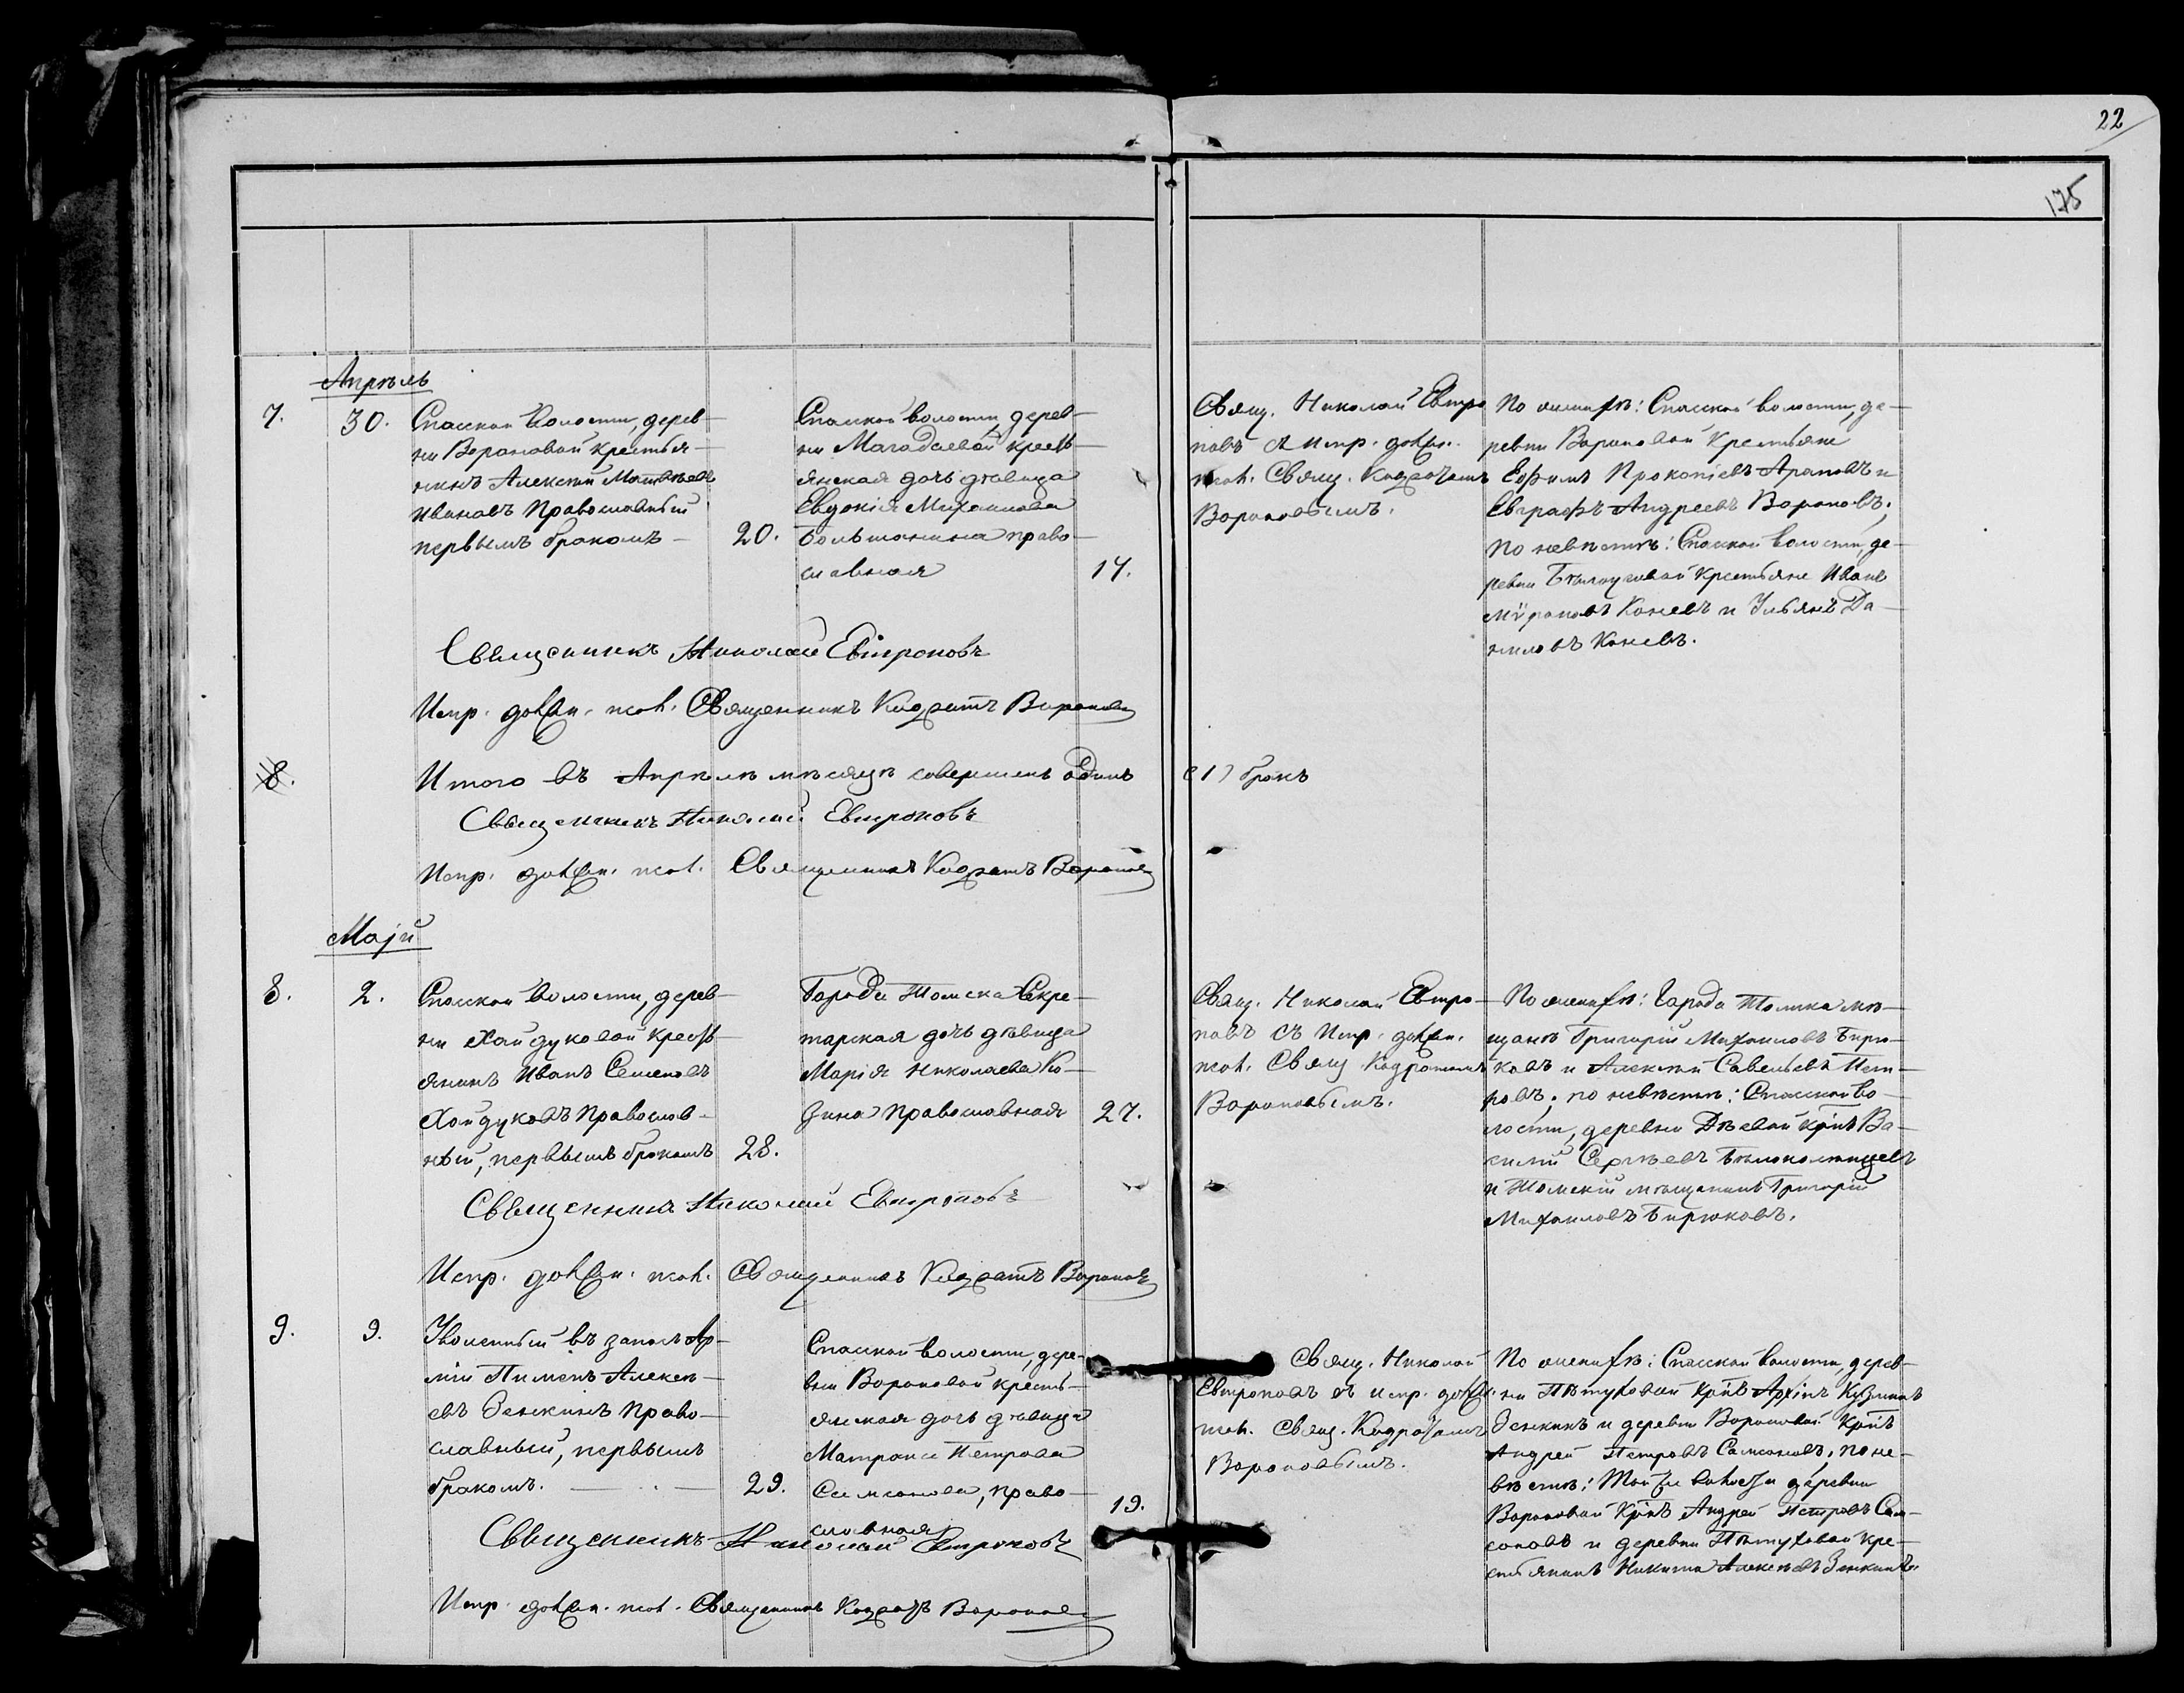 22
175
Апрѣль
7.
30.
Спасской волости, дерев-
ни Вороновой крестья-
нинъ Алексѣй Матвѣевъ
Ивановъ Православный
первымъ бракомъ —
20.
Спасской волости, дерев-
ни Магадаевой крестъ-
янская дочь дѣвица
Евдокія Михаилова
Большанина право-
славная
17.
Свящ. Николай Евтро
повъ съ испр. должн.
псал. Свящ. Кодратомъ
Вороновымъ.
По женихѣ: Спасской волости, де-
ревни Вороновой крестьяне
Ефимъ Прокопіевъ Араповъ и
Евграфъ Андреевъ Вороновъ;
по невѣстѣ: Спасской волости, де-
ревни Бѣлоусовой крестьяне Иванъ
Мѵроновъ Коневъ и Ульянъ Да-
ниловъ Коневъ.
Священникъ Николай Евтроповъ
Испр. должн. псал. Священникъ Кодратъ Вороновъ
8.
Итого въ Апрѣлѣ мѣсяцѣ совершенъ одинъ
(1) бракъ
Священникъ Николай Евтроповъ
Испр. должн. псал. Священникъ Кодратъ Вороновъ
Маій
8.
2.
Спасской волости, дерев-
ни Хайдуковой крестъ-
янинъ Иванъ Семеновъ
Хайдуковъ Православ-
ный, первымъ бракомъ
28.
Города Томска Секре-
тарская дочь дѣвица
Марія Николаева Ко-
зина Православная
27.
Свящ. Николай Евтро-
повъ съ Испр. должн.
псал. Свящ. Кодратомъ
Вороновымъ.
По женихѣ: Города Томска мѣ-
щанѣ Григорій Михаиловъ Бирю-
ковъ и Алексѣй Савельевъ Пет-
ровъ; по невѣстѣ: Спасской во-
лости, деревни Дѣевой кр̃нъ Ва-
силій Сергѣевъ Бѣлокопытцевъ
и Томскій мѣщанинъ Григорій
Михаиловъ Бирюковъ.
Священникъ Николай Евтроповъ
Испр. должн. псал. Священникъ Кодратъ Вороновъ
9.
9.
Уволенный въ запасъ Ар-
міи Пименъ Алексѣ-
евъ Зенкинъ Право-
славный, первымъ
бракомъ. —
29.
Спасской волости, дере-
вни Вороновой кресть-
янская дочь дѣвица
Матрона Петрова
Самсонова, право-
славная
19.
Свящ. Николай
Евтроповъ съ испр. должн.
псал. Свящ. Кодратомъ
Вороновымъ.
По женихѣ: Спасской волости, дерев-
ни Пѣтуховой кр̃нъ Архипъ Кузминъ
Зенкинъ и деревни Вороновой кр̃нъ
Андрей Петровъ Самсоновъ; по не-
вѣстѣ: Той же волости деревни
Вороновой кр̃нъ Андрей Петровъ Сам-
соновъ и деревни Пѣтуховой кре-
стьянинъ Никита Алексѣевъ Зенкинъ.
Священникъ Николай Евтроповъ
Испр. должн. псал. Священникъ Кодратъ Вороновъ